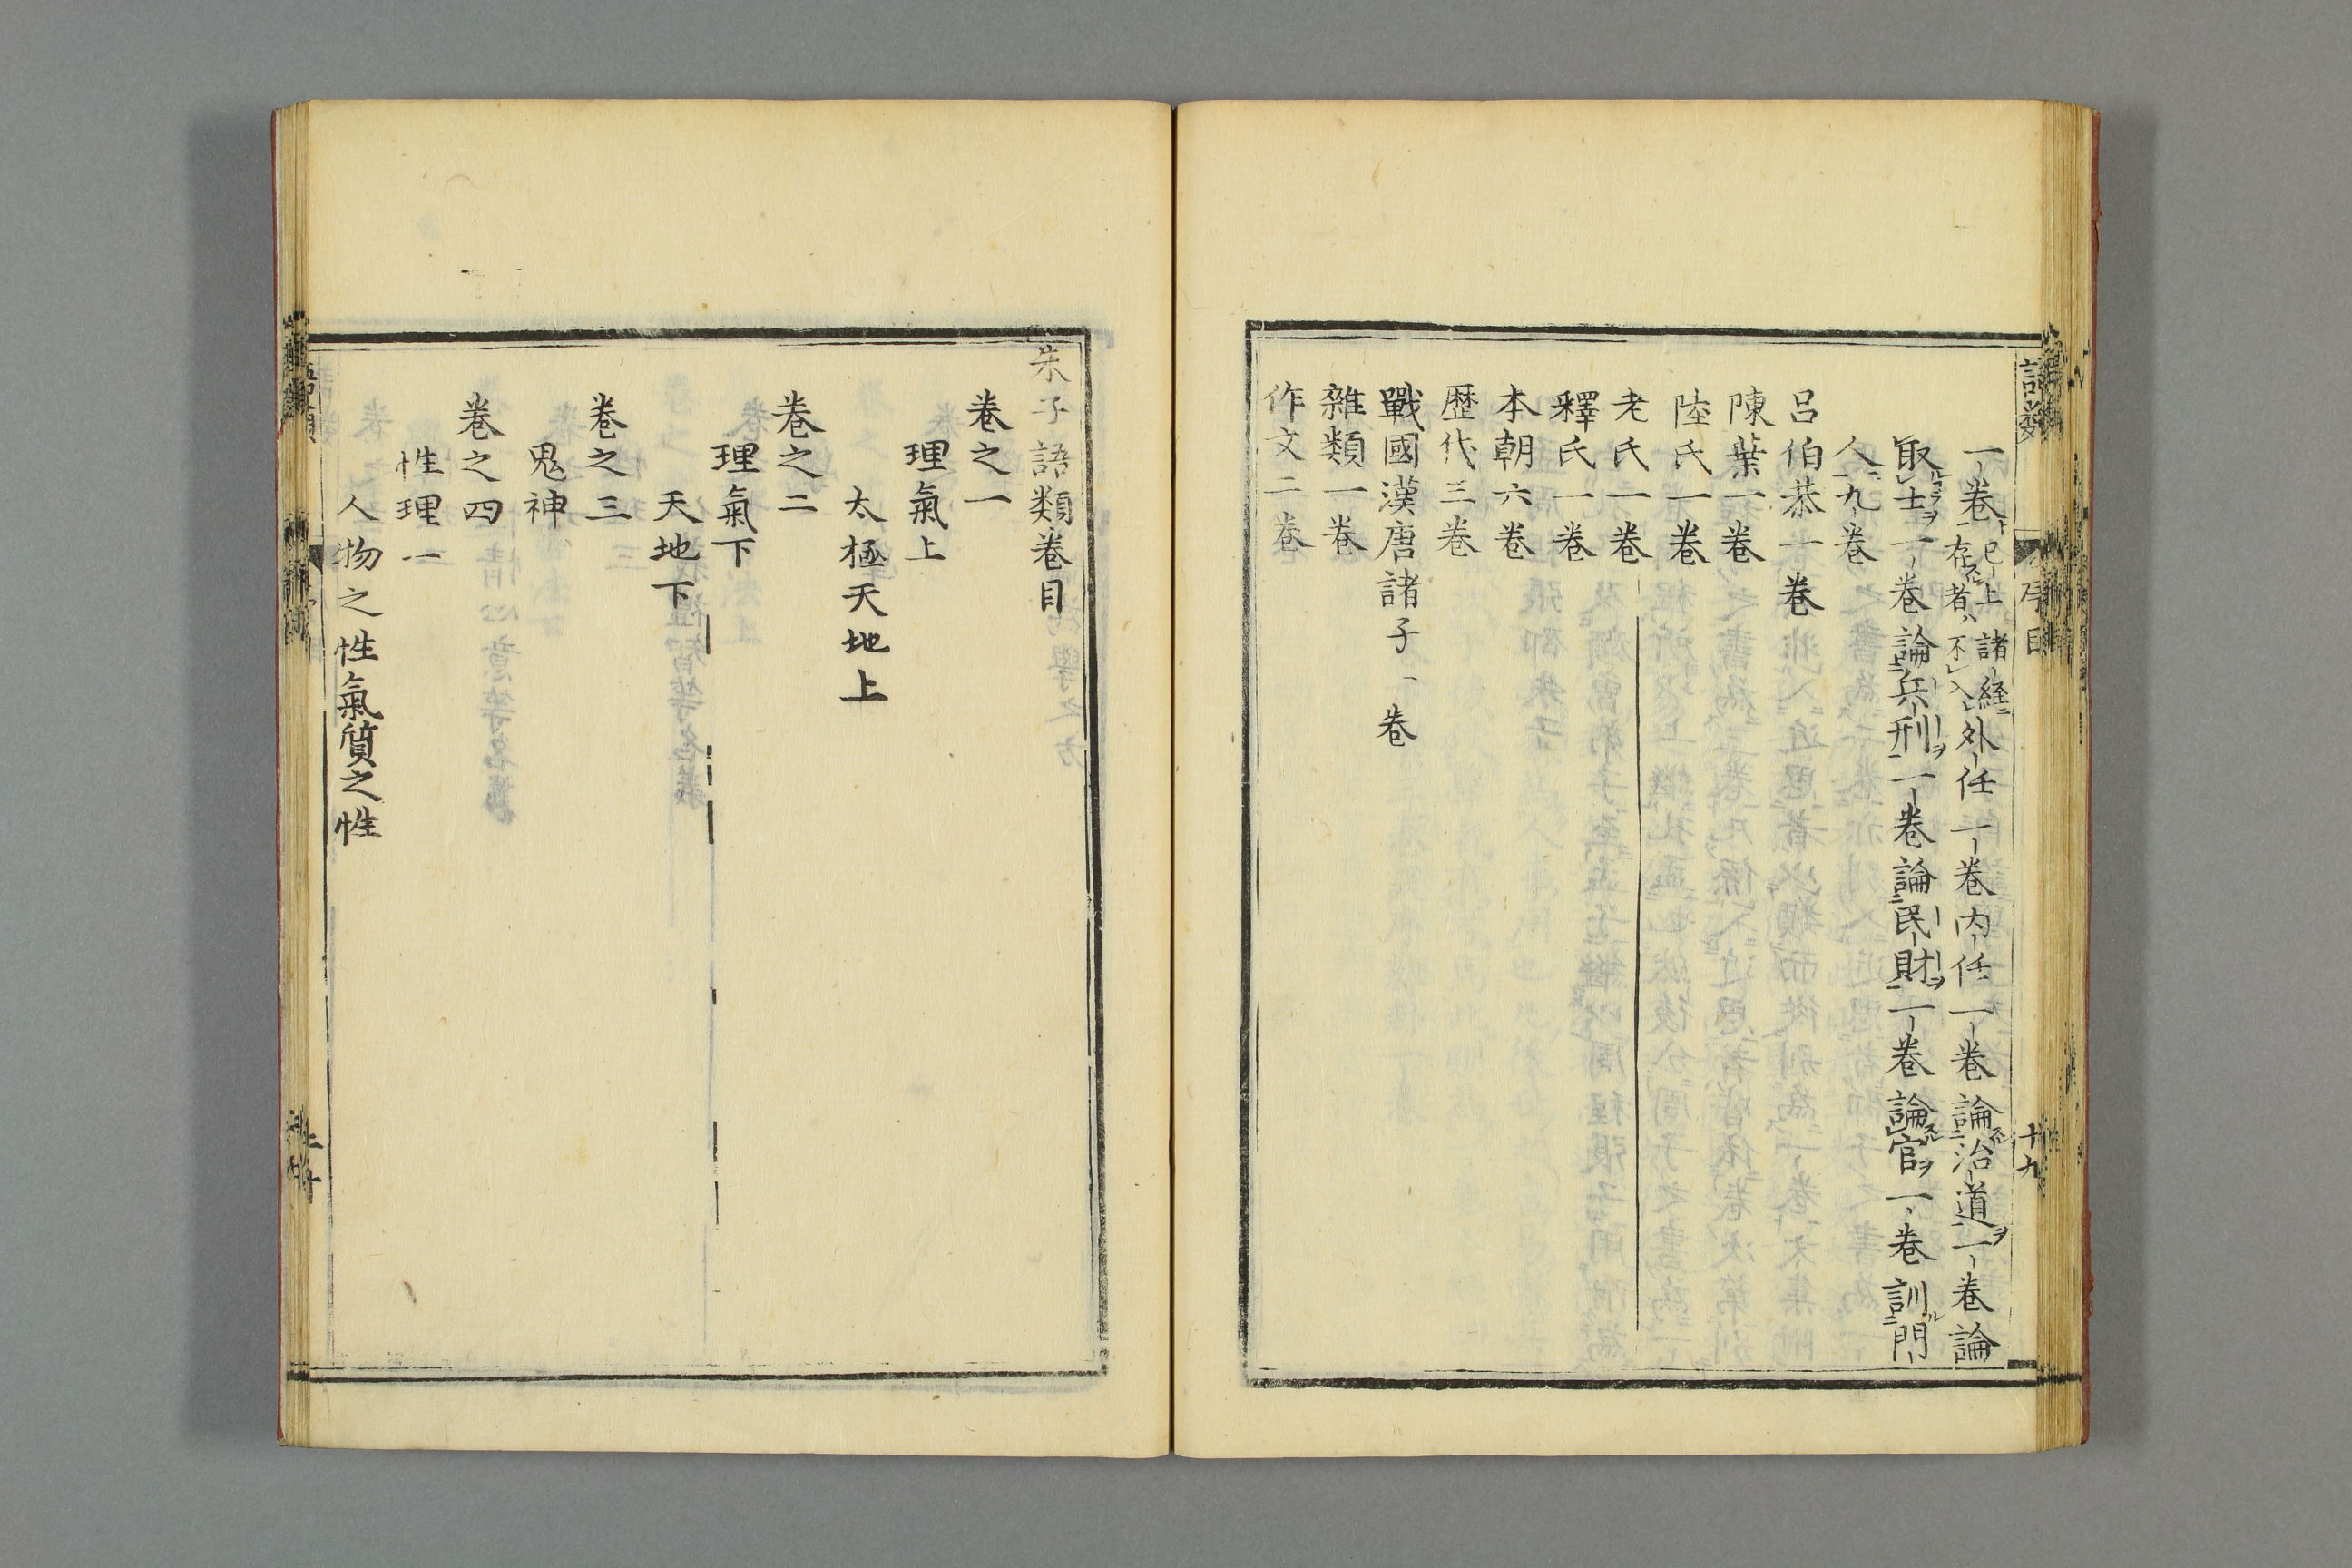 一卷已上諸経存者不入外任一卷内任一卷論治道一卷論
取士一卷論兵刑一卷論民財一卷論官一卷訓門
人九卷
呂伯恭一卷
陳葉一卷
陸氏一卷
老氏一卷
釋氏一卷
本朝六卷
歷代三卷
戰國漢唐諸子一卷
雜類一卷
作文二卷
朱子語類卷目
卷之一
理氣上
太極天地上
卷之二
理氣下
天地下
卷之三
鬼神
卷之四
性理一
人物之性氣質之性